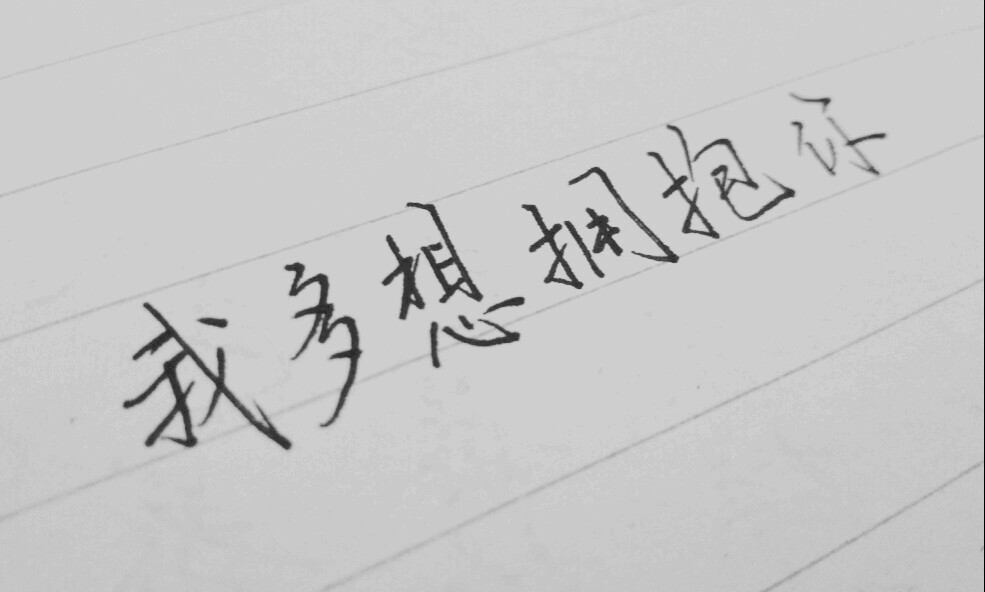 我多想拥抱你